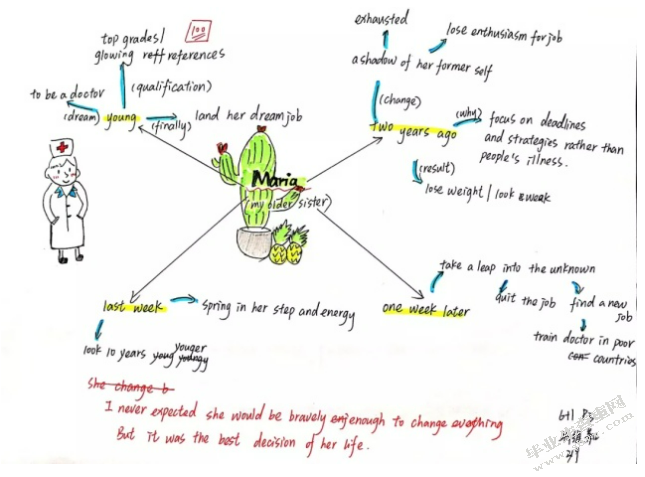 top grades/
glowing reff references
100
(qualification)
to be a doctor
(dream) young
(finally)
land her dream job
exhausted
lose enthusiasm for job
a shadow of her former self
(change)
two years ago
(why)
focus on deadlines
and strategies rather than
people's illness.
(result)
lose weight / look & weak
Maria
(my older sister)
last week
spring in her step and energy
look 10 years young youngy
youger
one week later
take a leap into the unknown
quit the job
find a new
job
train doctor in poor
countries
She change b
I never expected she would be bravely enjenough to change everything
But it was the best decision of her life.
G11 P3